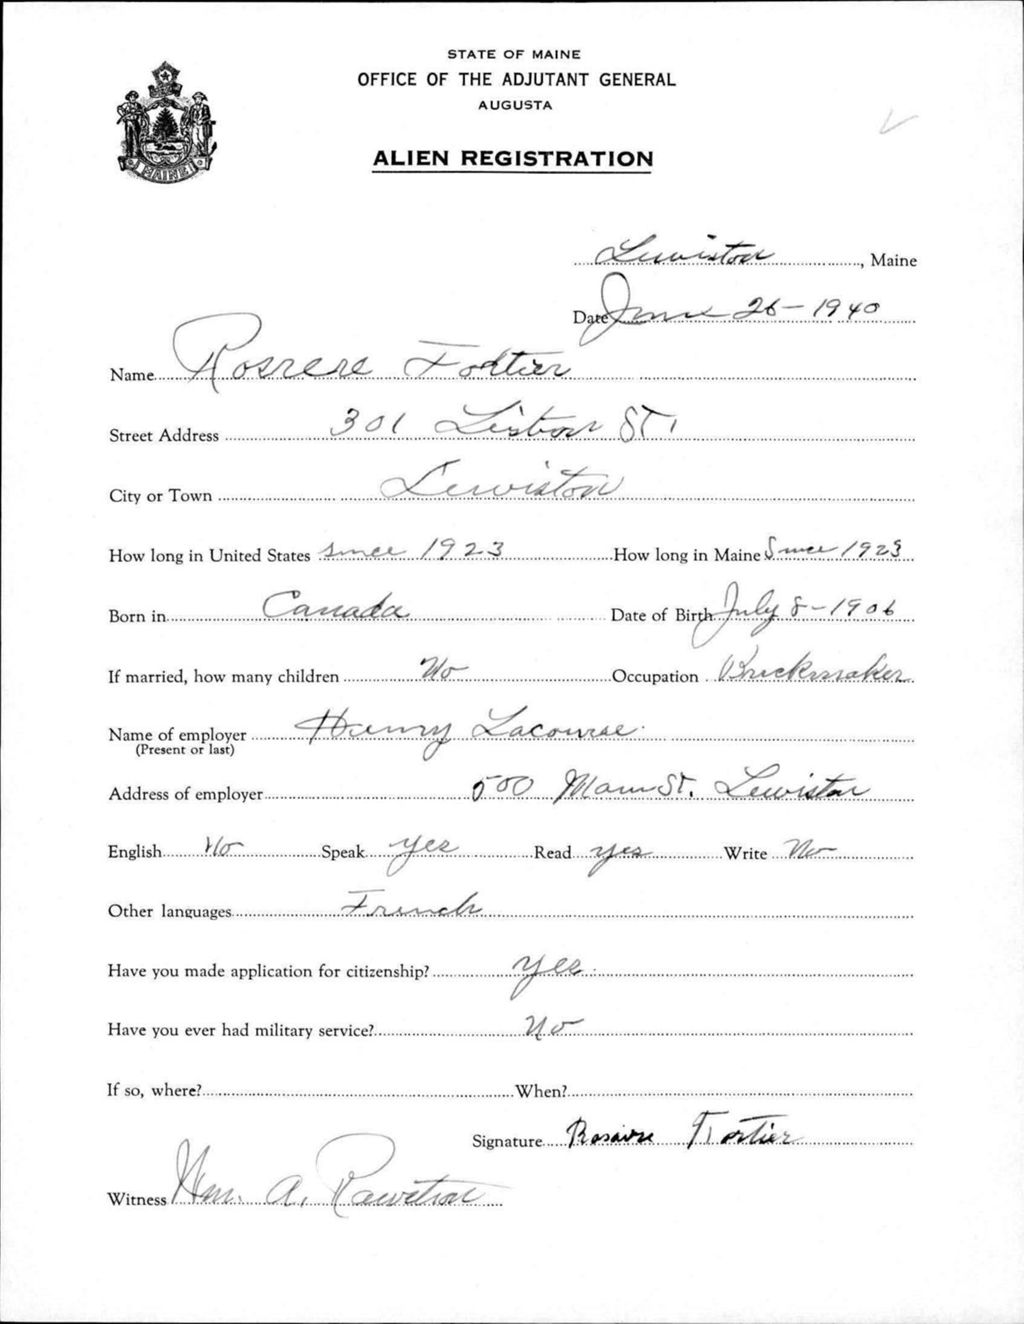 STATE OF MAINE
OFFICE OF THE ADJUTANT GENERAL
AUGUSTA
ALIEN REGISTRATION
MAINE
Lewiston, Maine
Date June 26-1940
Name Rosrere Fortier
Street Address 301 Lisbon ST.
City or Town Lewiston
How long in United States since 1923 How long in Maine Since 1923
Born in Canada Date of Birth July 8-1906
If married, how many children No Occupation Brickmaker
Name of employer Henry Lacourse
(Present or last)
Address of employer 500 Main ST. Lewiston
English No Speak yes Read yes Write No
Other languages French
Have you made application for citizenship? yes
Have you ever had military service? No
If so, where? When?
Signature Rosaire Fortier
Witness Wm. A.